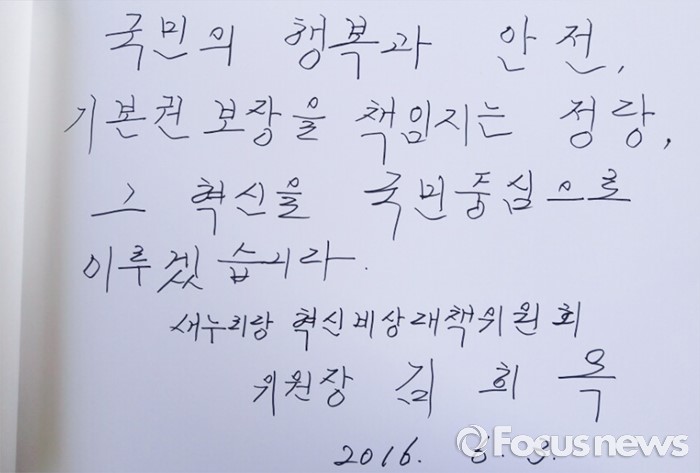 국민의 행복과 안전,
기본권 보장을 책임지는 정당,
그 혁신을 국민중심으로
이루겠습니다.
새누리당 혁신비상대책위원회
위원장 김 희 옥
2016. 6. 3.
Focusnews